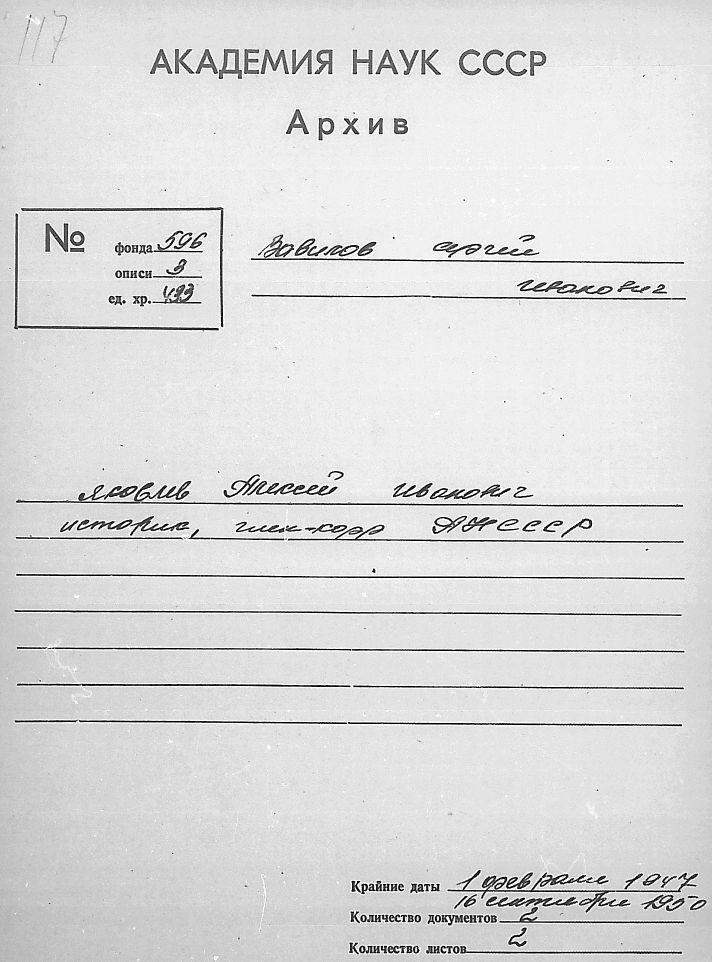 117
АКАДЕМИЯ НАУК СССР
Архив
№ фонда 596
описи 3
ед. хр. 493
Вавилов Сергей
Иванович
Яковлев Алексей Иванович
историк, член-корр АН СССР
Крайние даты 1 февраля 1947
16 сентября 1950
Количество документов 2
Количество листов 2